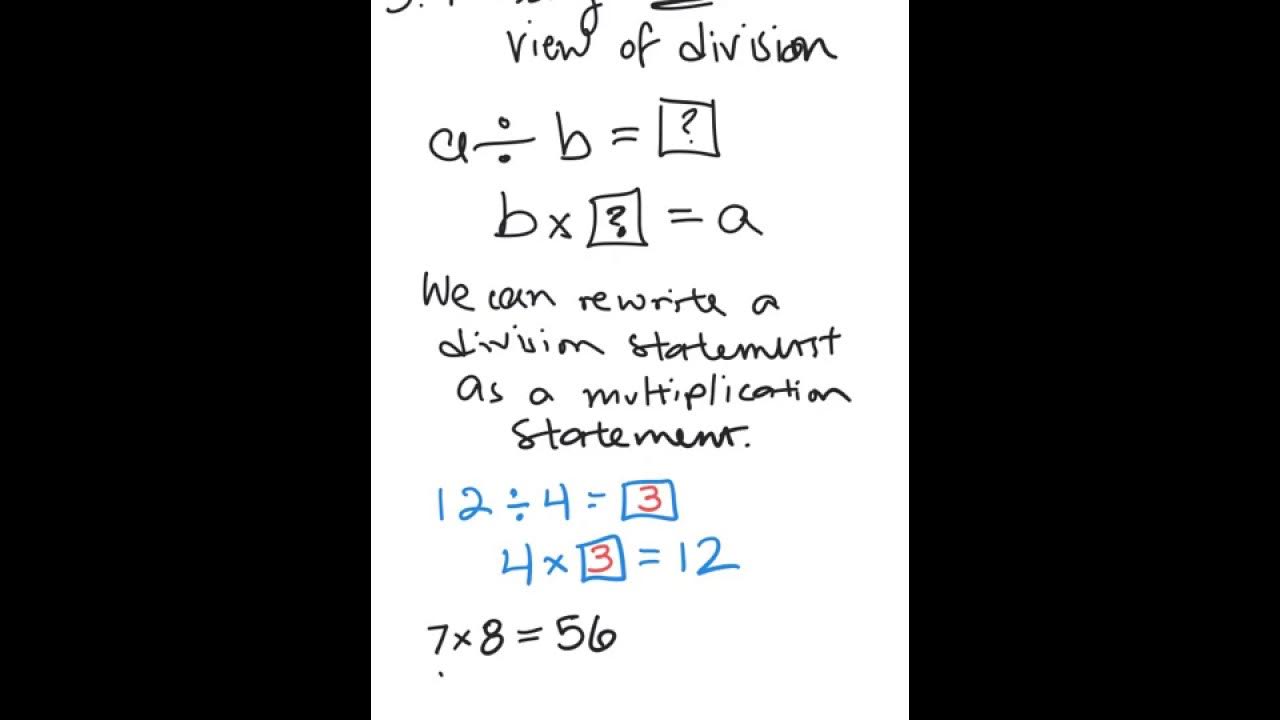 view of division
a ÷ b = ?
b × ? = a
We can rewrite a
division statement
as a multiplication
statement.
12 ÷ 4 = 3
4 × 3 = 12
7 × 8 = 56